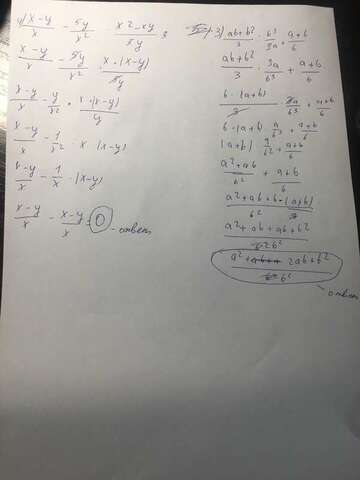 x-y/x - 5y/x² · x²-xy/5y =
x-y/x - 5y/x² · x·(x-y)/5y
x-y/x - y/x² · x·(x-y)/y
x-y/x - 1/x² · x·(x-y)
x-y/x - 1/x · (x-y)
x-y/x - x-y/x = 0 - ответ
3) ab+b²/3 : b³/3a + a+b/b
ab+b²/3 · 3a/b³ + a+b/b
b·(a+b)/3 · 3a/b³ + a+b/b
b·(a+b) · a/b³ + a+b/b
(a+b) · a/b² + a+b/b
a²+ab/b² + a+b/b
a²+ab+b·(a+b)/b²
a²+ab+ab+b²/b²
a²+2ab+b²/b²
- ответ